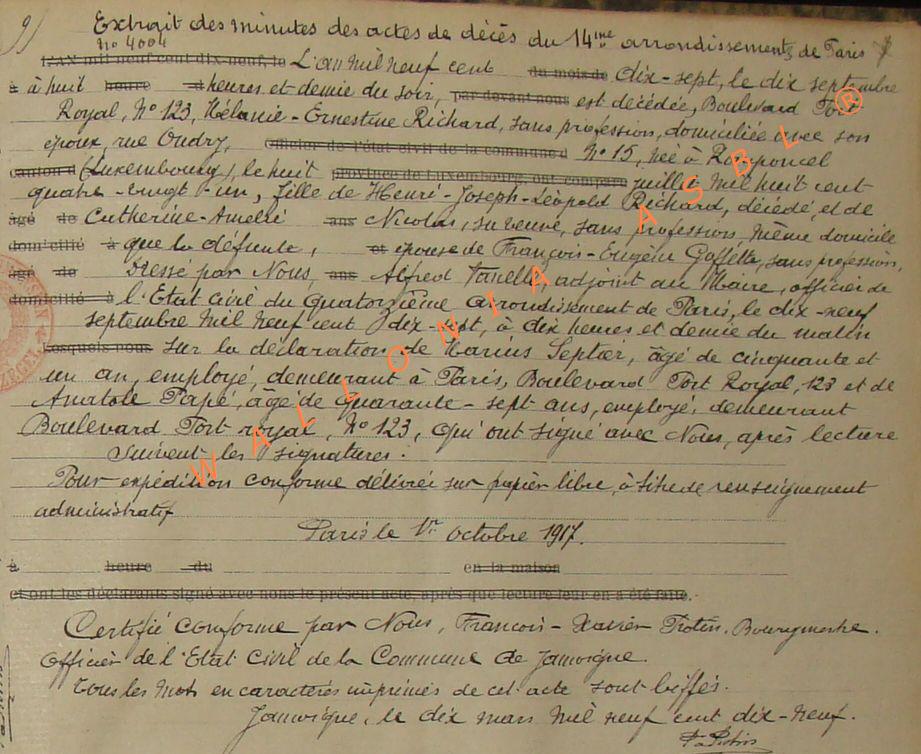 9)
Extrait des minutes des actes de décès du 14me arrondissement de Paris
no 4004
L'AN mil neuf cent dix-neuf, le L'an mil neuf cent du mois de dix-sept, le dix septembre
à à huit heure heures et demie du soir, par devant nous est décédée, Boulevard Port
Royal, No 123, Mélanie-Ernestine Richard, sans profession, domiciliée avec son
époux, rue Oudry, officier de l'état civil de la commune d No 15, née à Romponcel
canton d (Luxembourg), le huit province de Luxembourg, ont comparu juillet mil huit cent
quatre-vingt-un, fille de Henri-Joseph-Léopold Richard, décédé et de
âgé de Catherine-Amelie ans Nicolas, sa veuve, sans profession, même domicile
domicilié à que la défunte, et épouse de François-Eugène sans profession,
âgé de Dressé par Nous, ans Alfred adjoint au Maire, officier de
domicilié à l'Etat civil du quatorzième arrondissement de Paris, le dix-neuf
septembre mil neuf cent dix-sept, à dix heures et demie du matin
lesquels nous sur la déclaration de Marius Septier, âgé de cinquante et
un an, employé, demeurant à Paris, Boulevard Port Royal, 123 et de
Anatole Papé, âgé de quarante-sept ans, employé, demeurant
Boulevard Port royal, No 123, qui ont signé avec Nous, après lecture
Suivent les signatures.
Pour expédition conforme délivrée sur papier libre, à titre de renseignement
administratif
Paris le 1er octobre 1917.
à heure du en la maison
et ont les déclarants signé avec nous le présent acte, après que lecture leur en a été faite.
Certifié conforme par Nous, François-Xavier Bourgmestre.
Officier de l'Etat Civil de la Commune de Jamoigne.
Tous les mots en caractères imprimés de cet acte sont biffés.
Jamoigne, le dix mars mil neuf cent dix-neuf.
WALLONIA ASBL ®